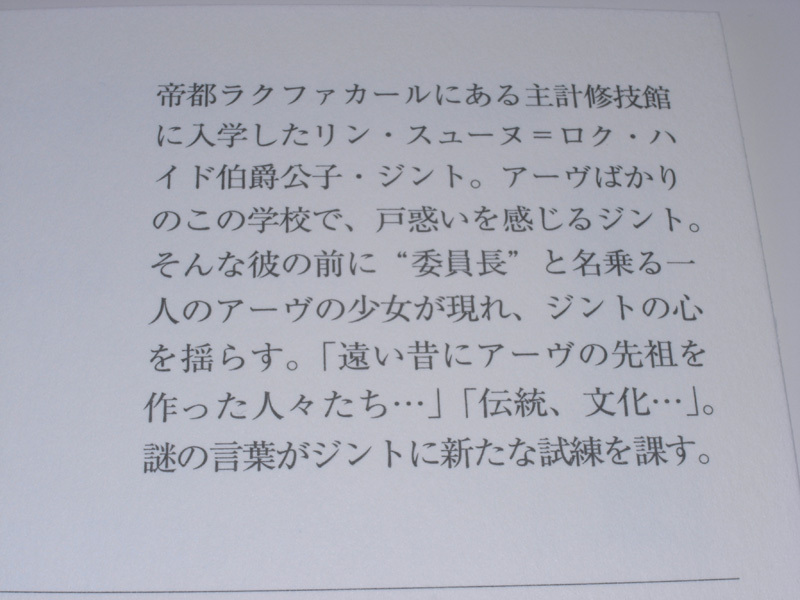 帝都ラクファカールにある主計修技館
に入学したリン・スューヌ＝ロク・ハ
イド伯爵公子・ジント。アーヴばかり
のこの学校で、戸惑いを感じるジント。
そんな彼の前に“委員長”と名乗る一
人のアーヴの少女が現れ、ジントの心
を揺らす。「遠い昔にアーヴの先祖を
作った人々たち…」「伝統、文化…」。
謎の言葉がジントに新たな試練を課す。